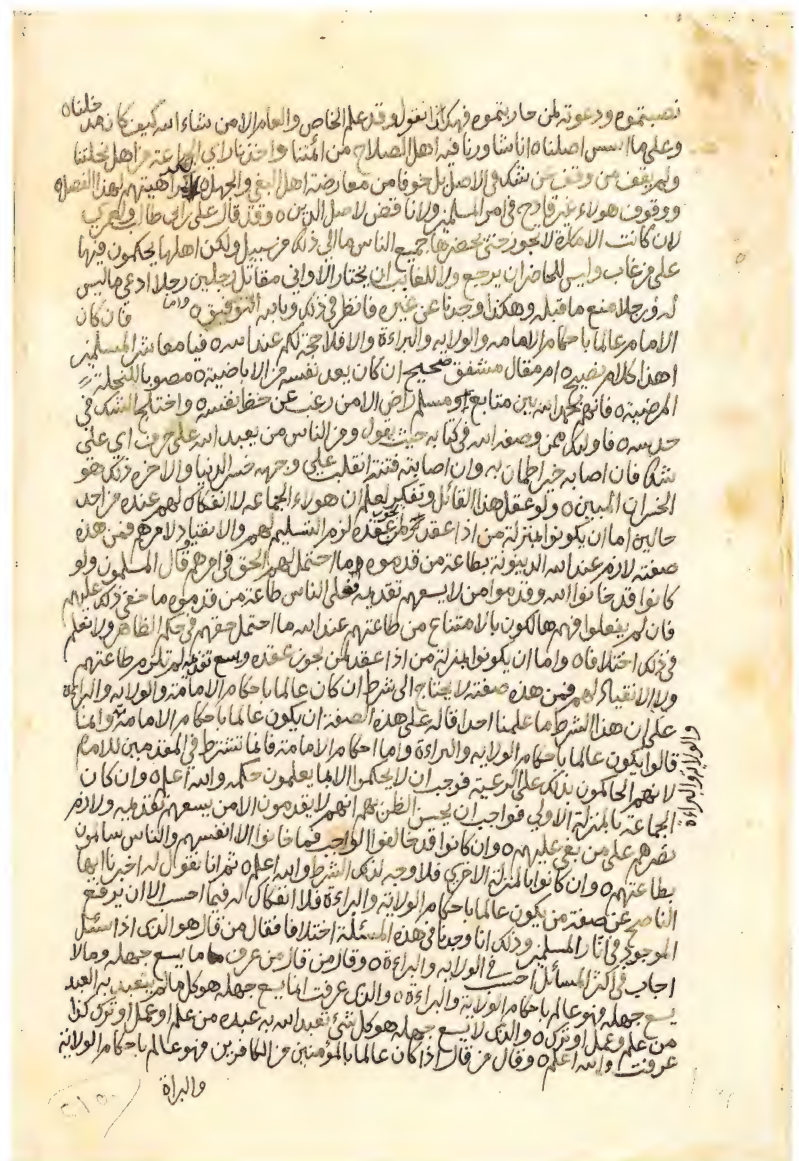 نصبتموه ودعوته لمن حاربتموه فهكذا نقول وقد علم الخاص والعام الا من شاء الله كيف كان دخلنا ه
وعلى ما اسس اصلنا ه انا شاورنا فيه اهل الصلاح من ائمتنا واخذنا راى الجماعة من اهل نحلتنا
ولم يقف من وقف عن شك فى الاصل بل خوفا من معارضة اهل البغى والجهل ه لهذا الفصل ه
ووقوف هولاء غير قادح فى امر المسلمين ولا ناقض لاصل الدين ه وقد قال على بن ابى طالب
لان كانت الامامة لا تجوز حتى يحضرها جميع الناس ما الى ذلك من سبيل ولكن اهلها يحكمون فيها
على من غاب وليس للحاضر ان يرجع ولا للغايب ان يختار الا وانى مقاتل رجلين رجلا ادعى ما ليس
له ورجلا منع ما قبله وهكذا وجدنا عن غيره فانظر فى ذلك وبالله التوفيق ه واما فان كان
الامام عالما باحكام الامامه والولايه والبراءة والا فلا حجة لكم عند الله ه فيا معاشر المسلمين
اهذا كلام نصيح ه ام مقال مشفق صحيح ان كان يعد نفسه من الاباضية ه مصوبا للنحلة
المرضية ه فانهم بحمد الله بين متابع او مسلم راض الا من رغب عن حظ نفسه ه واختلج الشك فى
حدسه ه فاولئك ممن وصفه الله فى كتابه حيث يقول ومن الناس من يعبد الله على حرف اى على
شك فان اصابه خير اطمان به وان اصابته فتنة انقلب على وجهه خسر الدنيا والاخرة ذلك هو
الخسران المبين ه ولو عقل هذا القائل وتفكر لعلم ان هولاء الجماعه لا انفكاك لهم عنده من احد
حالين ه اما ان يكونوا بمنزلة من اذا عقد عقده لزم التسليم لهم والانقياد لامرهم فمن هذه
صفته لازم عند الله الدينونة بطاعة من قدموه وما احتمل لهم الحق فى امرهم قال المسلمون ولو
كانوا قد خانوا الله وقدموا من لا يسعهم تقديمه فعلى الناس طاعة من قدموه ما خفى ذلك عليهم
فان لم يفعلوا فهم هالكون بالامتناع من طاعتهم عند الله ما احتمل حقهم فى حكم الظاهر ولا نعلم
فى ذلك اختلافا ه واما ان يكونوا بمنزلة من اذا عقد لمن يجوز عقده وسع تقديمه لم تلزم طاعتهم
ولا الانقياد لهم فمن هذه صفته لا يحتاج الى شرط ان كان عالما باحكام الامامة والولايه والبراءة
على ان هذا الشرط ما علمنا احدا قاله على هذه الصفة ان يكون عالما باحكام الامامة وانما
قالوا يكون عالما باحكام الولايه والبراءة واما احكام الامامة فانما تشترط فى المقدمين للامام
لانهم الحاكمون بذلك على الرعية فوجب ان لا يحكموا الا بما يعلمون حكمه والله اعلم ه وان كان
الجماعة بالمنزلة الاولى فواجب ان يحسن الظن بهم انهم لا يقدمون الا من يسعهم تقديمه ولازم
نصرهم على من بغى عليهم ه وان كانوا قد خالفوا الواجب فما خانوا الا انفسهم والناس سالمون
بطاعتهم ه وان كانوا بالمنزلة الاخرى فلا وجه لذلك الشرط والله اعلم ه ثم انا نقول له اخبرنا ايها
الناصح عن صفة من يكون عالما باحكام الولاية والبراءة فلا انفكاك له فيما احسب الا ان يرفع
الموجود فى اثار المسلمين وذلك انا وجدنا فى هذه المسئلة اختلافا فقال من قال هو الذى اذا سئل
اجاب فى اكثر المسائل احسب فى الولايه والبراءة ه وقال من قال من عرف ما يسع جهله وما لا
يسع جهله فهو عالم باحكام الولاية والبراءة ه والذى عرفت انما يسع جهله هو كل ما لم يتعبد به العبد
من علم وعمل او ترك ه والذى لا يسع جهله هو كل شئ تعبد الله به عبده من علم او عمل او ترك كذا
عرفت والله اعلم ه وقال من قال اذا كان عالما بالمؤمنين من الكافرين فهو عالم باحكام الولاية
والبراة
والولاية والبراءة